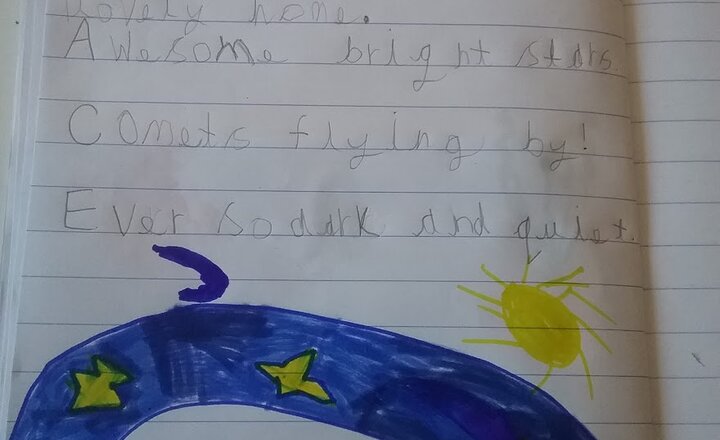 lovely home.
Awesome bright stars.
Comets flying by!
Ever so dark and quiet.